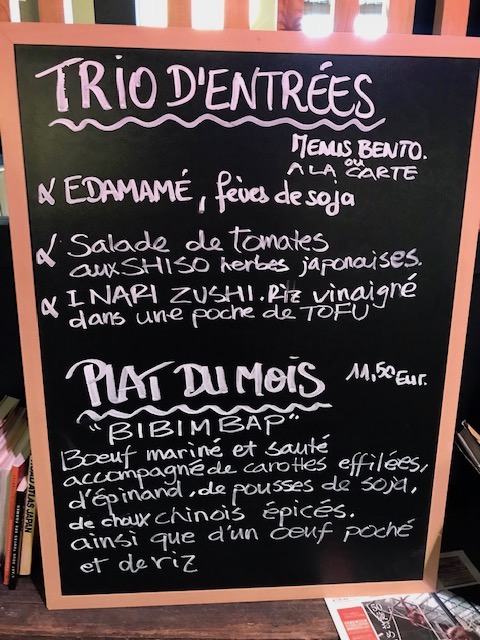 TRIO D'ENTRÉES
MENUS BENTO.
ou
A LA CARTE
EDAMAMÉ, fèves de soja
Salade de Tomates
aux SHISO herbes japonaises.
INARI ZUSHI. Riz vinaigné
dans une poche de TOFU
PLAT DU MOIS 11,50 Eur.
"BIBIMBAP"
Bœuf mariné et sauté
accompagné de carottes effilées,
d'épinand, de pousses de soja,
de choux chinois épicés.
ainsi que d'un œuf poché
et de riz